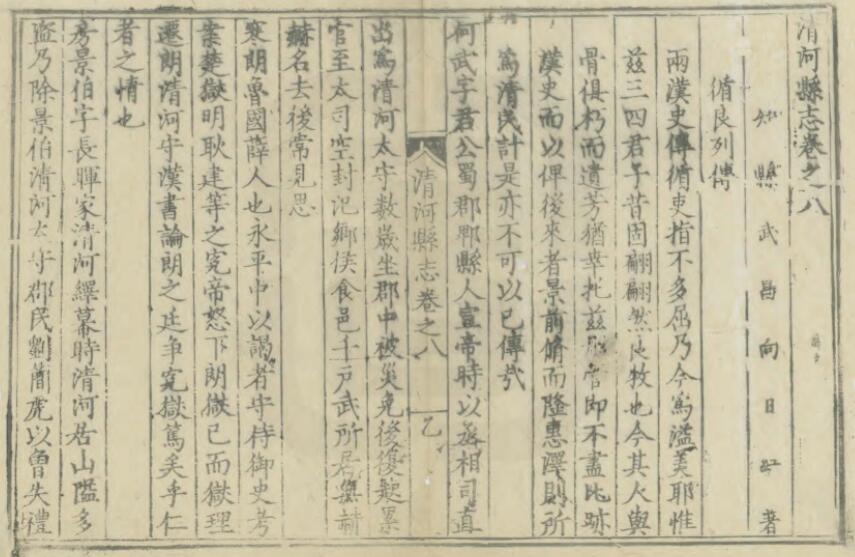 清河縣志卷之八
知縣武昌向日紅著
循良列傳
兩漢史傳循吏指不多屈乃今爲溢美耶惟
茲三四君子昔固翩翩然良牧也今其人與
骨俱朽而遺芳猶在茲即不盡比跡
漢史而以俾後來者景前脩而隆惠澤則所
爲清民計是亦不可以已傳哉
何武字君公蜀郡郫縣人宣帝時以丞相司直
出爲清河太守數歲坐郡中被災免後復起累
官至大司空封氾鄉侯食邑千戶武所居無赫
赫名去後常見思
寒朗魯國薛人也永平中以謁者守侍御史考
案楚獄明耿建等之冤帝怒下朗獄已而獄理
遷朗清河守漢書論朗之廷爭冤獄篤矣乎仁
者之情也
房景伯字長暉家清河繹幕時清河居山隘多
盜乃除景伯清河太守郡民劉簡虎以魯失禮
清河縣志卷之八
乙